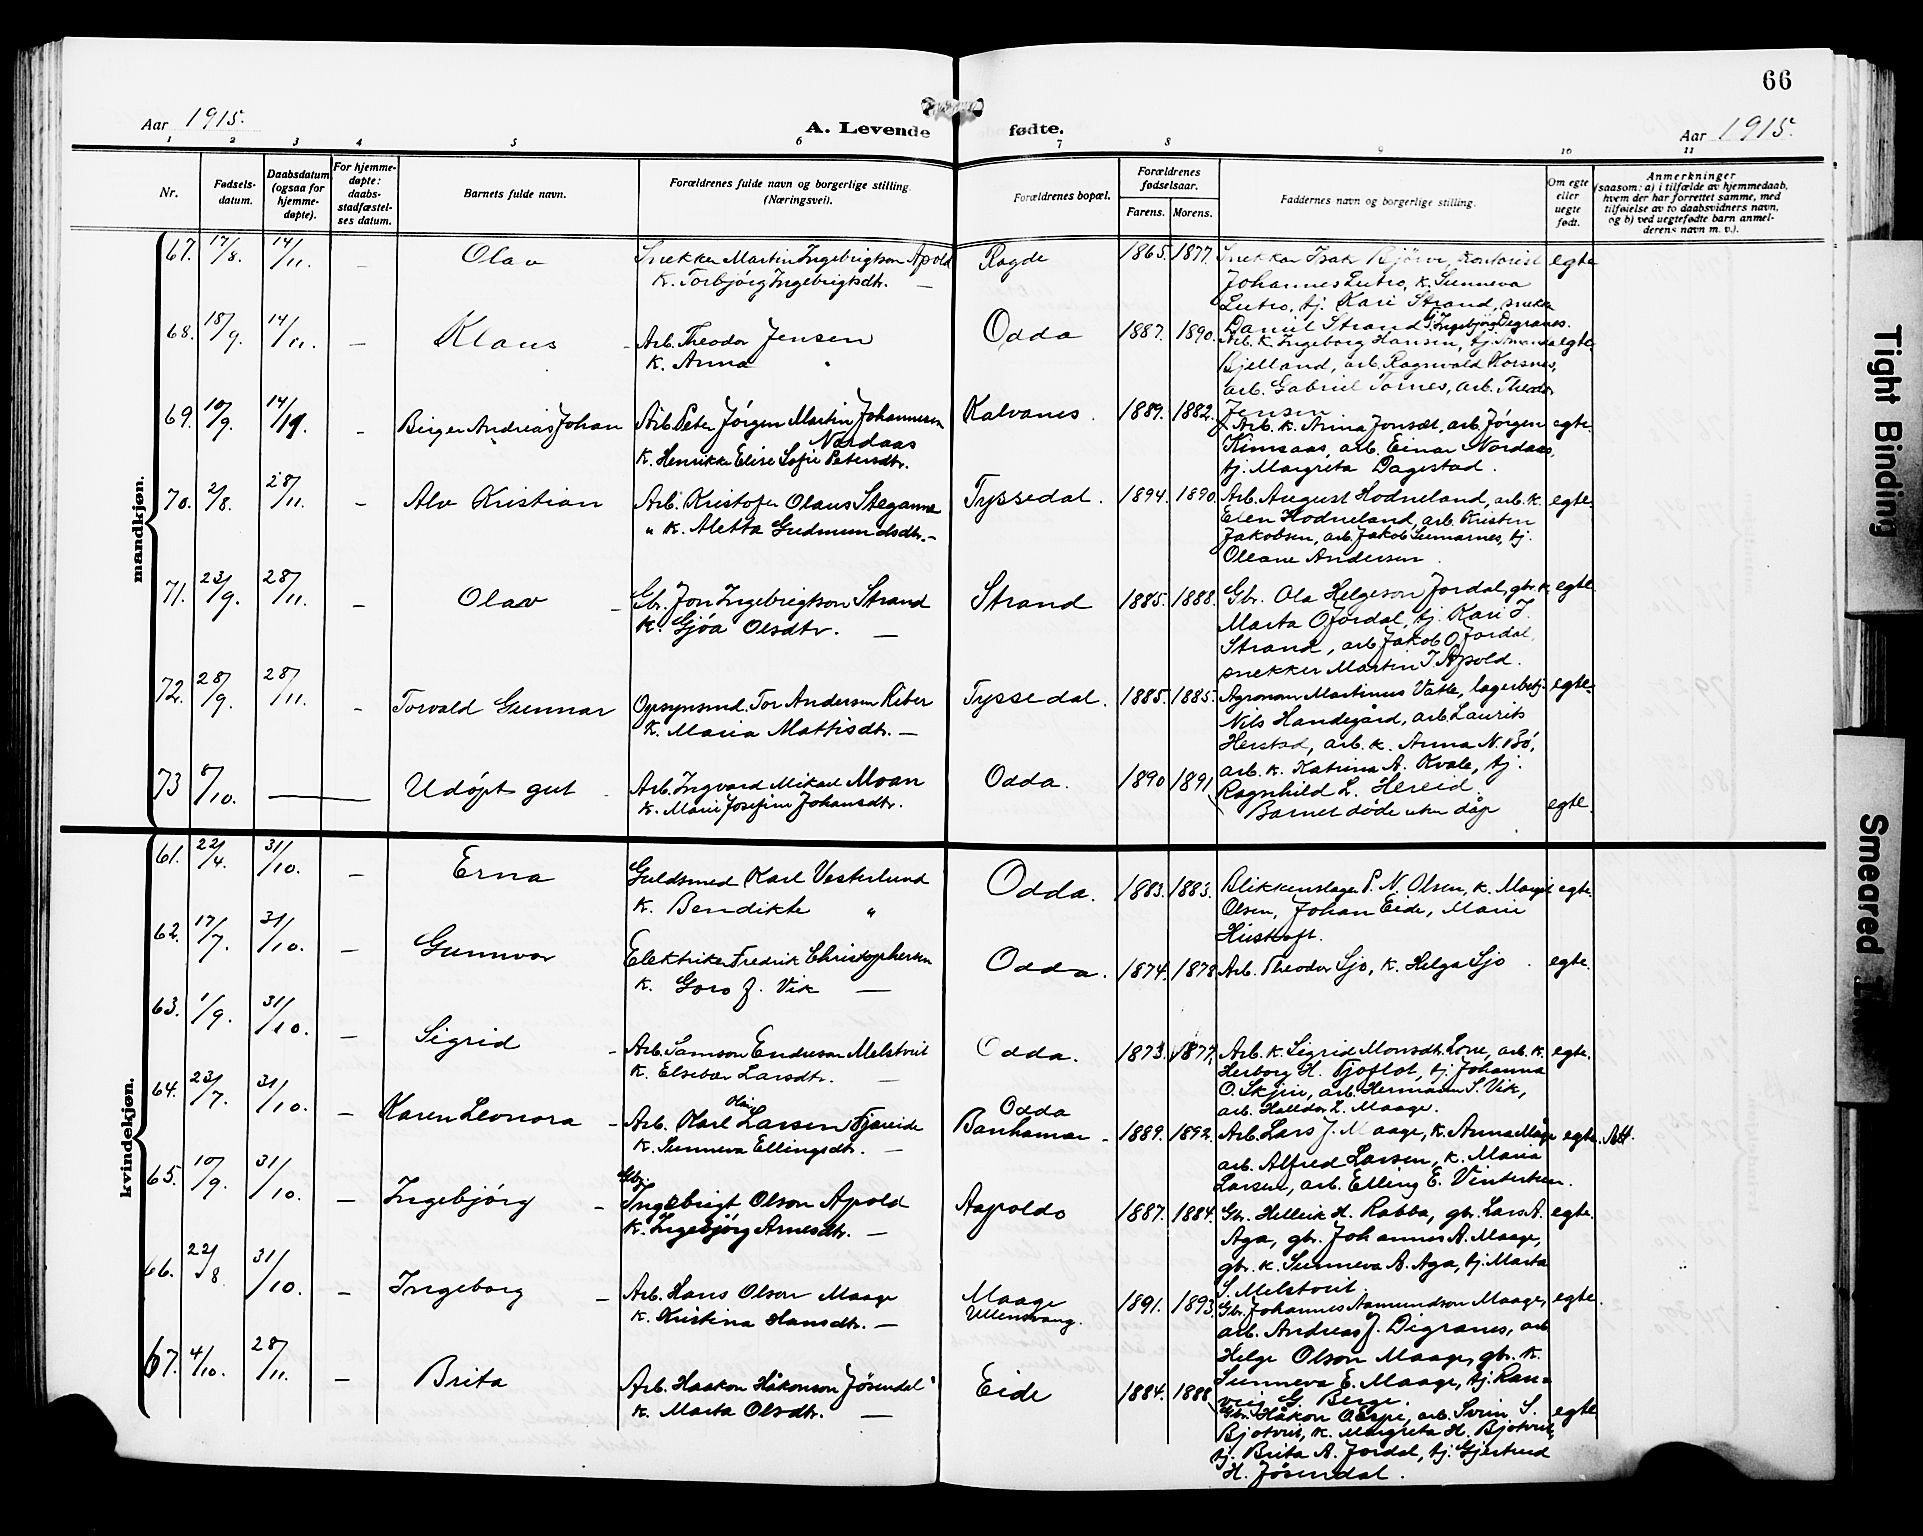 66
Aar 1915.
A. Levende fødte.
Aar 1915.
1 2 3 4 5 6 7 8 9 10 11
Nr.
Fødsels-
datum.
Daabsdatum
(ogsaa for
hjemme-
døpte).
For hjemme-
døpte:
daabs-
stadfæstel-
ses datum.
Barnets fulde navn.
Forældrenes fulde navn og borgerlige stilling
(Næringsvei).
Forældrenes bopæl.
Forældrenes
fødselsaar.
Farens. Morens.
Faddernes navn og borgerlige stilling.
Om egte
eller
uegte
født.
Anmerkninger
(saasom: a) i tilfælde av hjemmedaab,
hvem der har forrettet samme, med
tilføielse av to daabsvidners navn,
og b) ved uegtefødte barn anmel-
derens navn m. v.).
mandkjøn.
67. 17/8. 14/11. – Olav
Snekker Martin Ingebrigtson Apold
K. Torbjørg Ingebrigtsdtr. –
Ragde 1865. 1877.
Snekker Isak Bjørve, kontorist
Johannes Lutro, k. Sunneva
Lutro, tj. Kari Strand, snekker
Daniel Strand, Ingebjørg Degranes.
egte
68. 18/9. 14/11. – Klaus –
Arb. Theodor Jensen
K. Anna "
Odda 1887. 1890.
Arb. k. Ingeborg Hansen, tj. Amanda
Bjelland, arb. Ragnvald Korsnes,
arb. Gabriel Tornes, arb. Theodor
Jensen
egte.
69. 10/9. 14/11. – Birger Andreas Johan
Arb. Peter Jørgen Martin Johannesen
Nordaas
K. Henrikke Elise Sofie Petersdtr.
Kalvanes. 1889. 1882.
Arb. k. Anna Jonsdt, arb. Jørgen
Kimsaas, arb. Einar Nordaas,
tj. Margreta Dagestad.
egte.
70. 2/8. 28/11. – Alv Kristian
Arb. Kristofer Olaus Steganne
" K. Aletta Gudmundsdtr. –
Tyssedal. 1894. 1890.
Arb. August Hodneland, arb. k.
Elen Hodneland, arb. Kristen
Jakobsen, arb. Jakob Sunnarnes, tj.
Oleane Andersen.
egte.
71. 23/9. 28/11. – Olav –
Gbr. Jon Ingebrigtson Strand
K. Gjøa Olsdtr. –
Strand 1885. 1888.
Gbr. Ola Helgeson Jordal, gbr. k.
Marta O. Jordal, tj. Kari J.
Strand, arb. Jakob O. Jordal,
snekker Martin I. Apold.
egte.
72. 28/9. 28/11. – Torvald Gunnar
Opsynsmd. Tor Andersen Riber
K. Maria Mattisdtr. –
Tyssedal. 1885. 1885.
Agronom Martinus Vatle, lagerbetj.
Nils Handegård, arb. Laurits
Herstad, arb. k. Anna N. Bø,
arb. k. Katrina A. Kvale, tj.
Ragnhild L. Hereid.
egte.
73 8/10. Udøpt gut
Arb. Ingvard Mikael Moan
K. Marie Josefine Johansdtr.
Odda. 1890 1891
Barnet døde uten dåp
egte.
kvindekjøn.
61. 22/4. 31/10. – Erna
Guldsmed Karl Vesterlund
K. Bendikte "
Odda. 1883. 1883.
Blikkenslager P. N. Olsen, k. Margit
Olsen, Johan Eide, Marie
egte.
62. 17/7. 31/10. – Gunnvor
Elektriker Fredrik Christophersen
K. Goro J. Vik –
Odda. 1874. 1878
Arb. Theodor Sjo, k. Helga Sjo.
egte.
63. 1/9. 31/10. – Sigrid –
Arb. Samson Endreson Melstveit
K. Elsebær Larsdtr. –
Odda. 1873. 1877.
Arb. k. Sigrid Monsdtr. Lone, arb. k.
Herborg H. Tjoflot, tj. Johanna
O. Skjei, arb. Hermann S. Vik,
arb. Halldor L. Maage.
egte.
64. 23/7. 31/10. – Karen Leonora –
Olai
Arb. Karl Larsen Fjæreide
K. Sunneva Ellingsdtr. –
Odda
Banhamar – 1889. 1892.
Arb. Lars J. Maage, k. Anna Måge
arb. Alfred Larsen, k. Maria
Larsen, arb. Elling E. Vinterhun.
egte. Att.
65. 10/9. 31/10. – Ingebjørg –
Gbr.
Ingebrigt Olson Apold
K. Ingebjørg Arnesdtr. –
Aapoldo 1887. 1884.
Gbr. Helleik H. Rabba, gbr. Lars A.
Aga, gbr. Johannes A. Maage,
gbr. k. Sunneva A. Aga, tj. Marta
S. Melstveit
egte.
66. 22/8 31/10. – Ingeborg –
Arb. Hans Olson Maage
K. Kristina Hansdtr. –
Maage
Ullensvang. 1891. 1893
Gbr. Johannes Aamundson Maage,
arb. Andreas J. Digranes, arb
Helge Olson Maage, gbr. k.
Sunneva E. Maage, tj. Ran-
veig G. Berge.
egte.
67. 4/10. 28/11. – Brita
Arb. Haakon Håkonson Jøsendal
K. Marta Olsdtr. –
Eide 1884. 1888
Gbr. Håkon Aespe, arb. Svein S.
Bjotveit, k. Margreta H. Bjotveit,
tj. Brita A. Jordal, tj. Gjertrud
H. Jøsendal.
egte
Tight Binding
Smeared